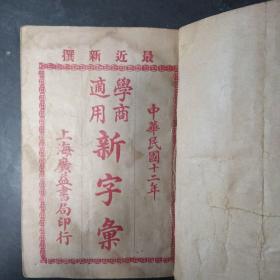 最近新撰
中華民國十二年
學商適用
新字彙
上海廣益書局印行